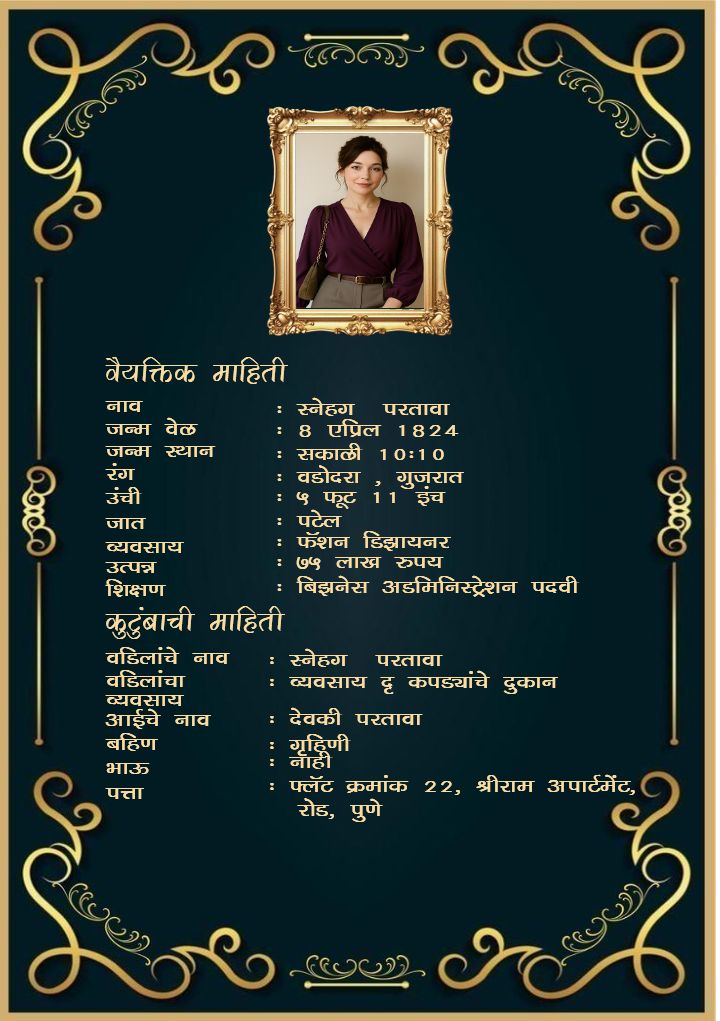 वैयक्तिक माहिती
नाव : स्नेहग परतावा
जन्म वेळ : 8 एप्रिल 1824
जन्म स्थान : सकाळी 10:10
रंग : वडोदरा , गुजरात
उंची : ५ फूट 11 इंच
जात : पटेल
व्यवसाय : फॅशन डिझायनर
उत्पन्न : ७५ लाख रुपय
शिक्षण : बिझनेस अडमिनिस्ट्रेशन पदवी
कुटुंबाची माहिती
वडिलांचे नाव : स्नेहग परतावा
वडिलांचा : व्यवसाय दृ कपड्यांचे दुकान
व्यवसाय
आईचे नाव : देवकी परतावा
बहिण : गृहिणी
भाऊ : नाही
पत्ता : फ्लॅट क्रमांक 22, श्रीराम अपार्टमेंट,
रोड, पुणे